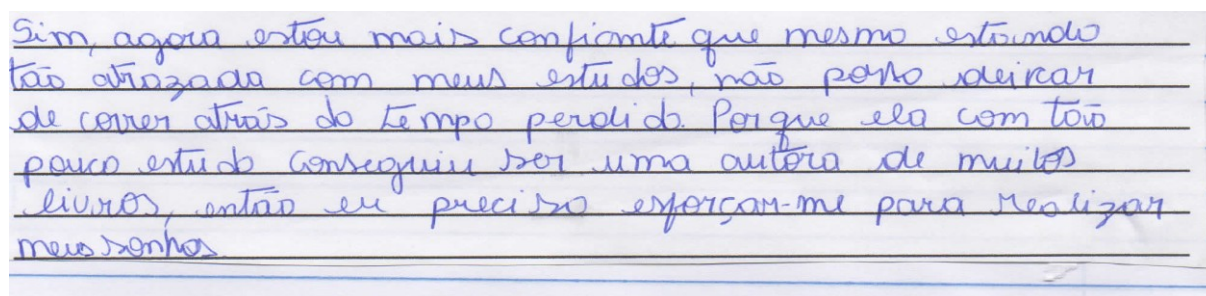 Sim, agora estou mais confiante que mesmo estando
tão atrazada com meus estudos, não posso deixar
de correr atrás do tempo perdido. Porque ela com tão
pouco estudo conseguiu ser uma autora de muitos
livros, então eu preciso esforçar-me para realizar
meus sonhos